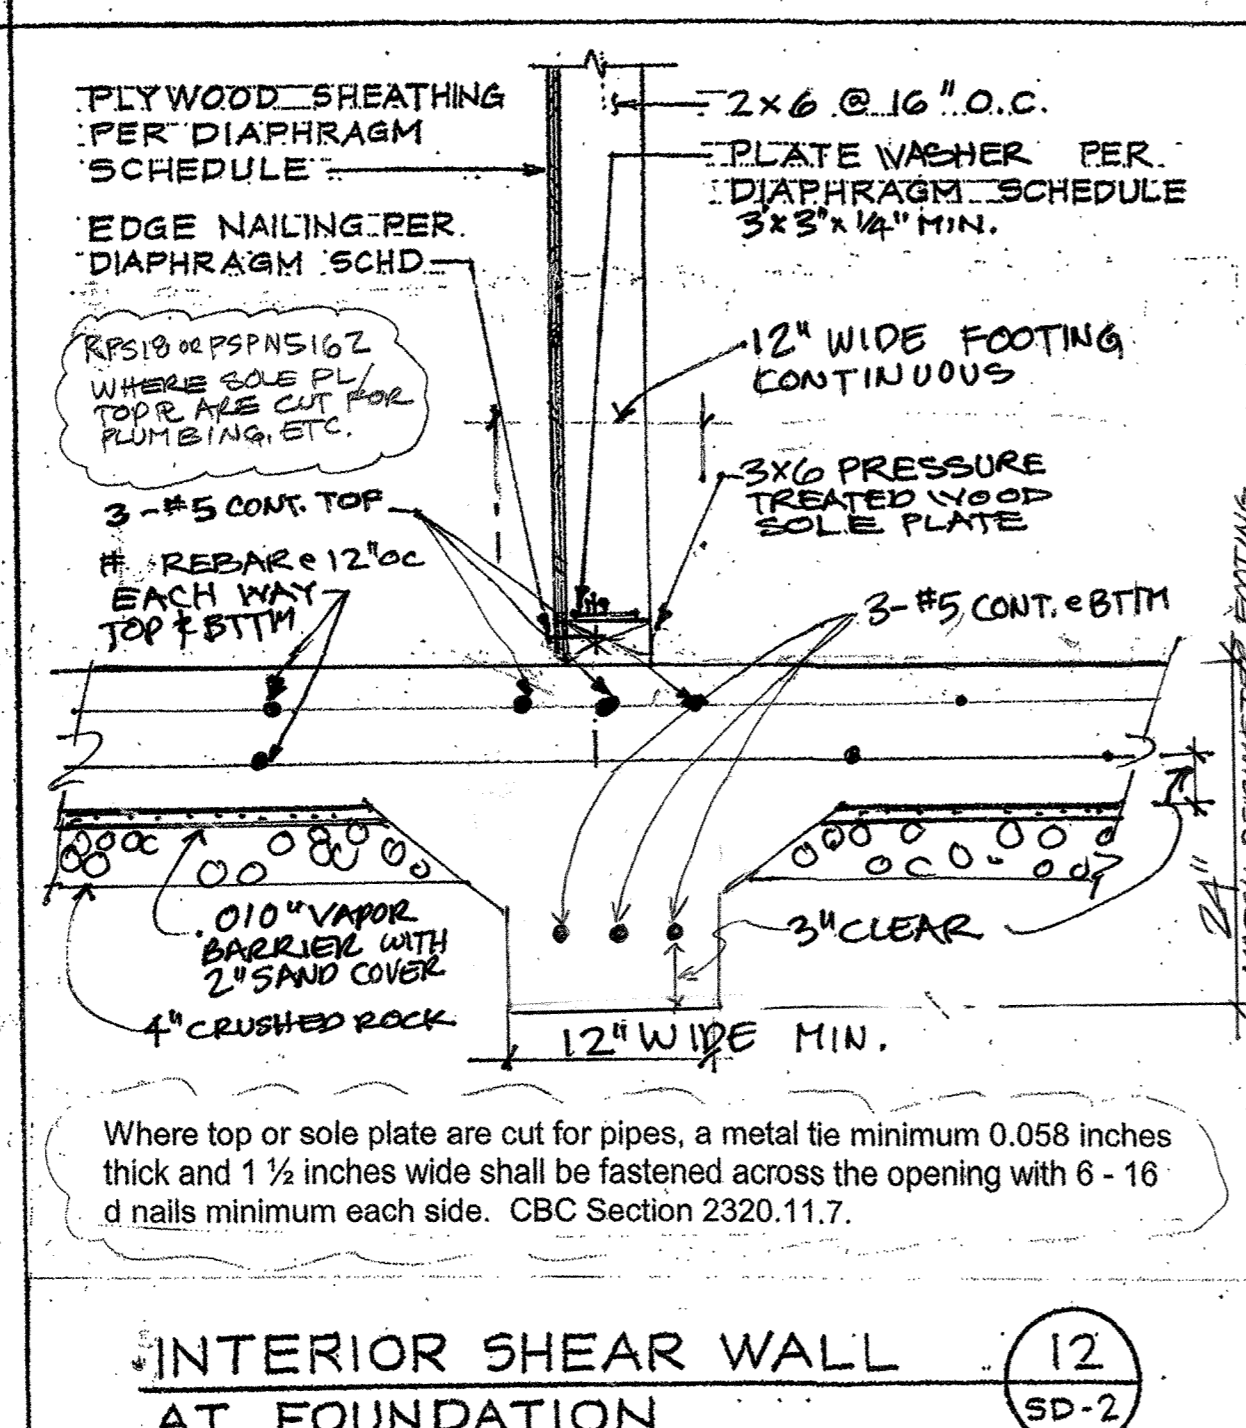 PLYWOOD SHEATHING
PER DIAPHRAGM
SCHEDULE
EDGE NAILING PER
DIAPHRAGM SCHD
2x6 @ 16" O.C.
PLATE WASHER PER
DIAPHRAGM SCHEDULE
3"x3"x1/4" MIN.
RPS18 OR PSPN516Z
WHERE SOLE PL/
TOP PL ARE CUT FOR
PLUMBING, ETC.
12" WIDE FOOTING
CONTINUOUS
3X6 PRESSURE
TREATED WOOD
SOLE PLATE
3-#5 CONT. TOP
# REBAR @ 12" OC
EACH WAY
TOP & BTTM
3-#5 CONT. @ BTTM
.010" VAPOR
BARRIER WITH
2" SAND COVER
4" CRUSHED ROCK
3" CLEAR
24"
12" WIDE MIN.
Where top or sole plate are cut for pipes, a metal tie minimum 0.058 inches
thick and 1 ½ inches wide shall be fastened across the opening with 6 - 16
d nails minimum each side. CBC Section 2320.11.7.
INTERIOR SHEAR WALL
AT FOUNDATION
12
SD-2